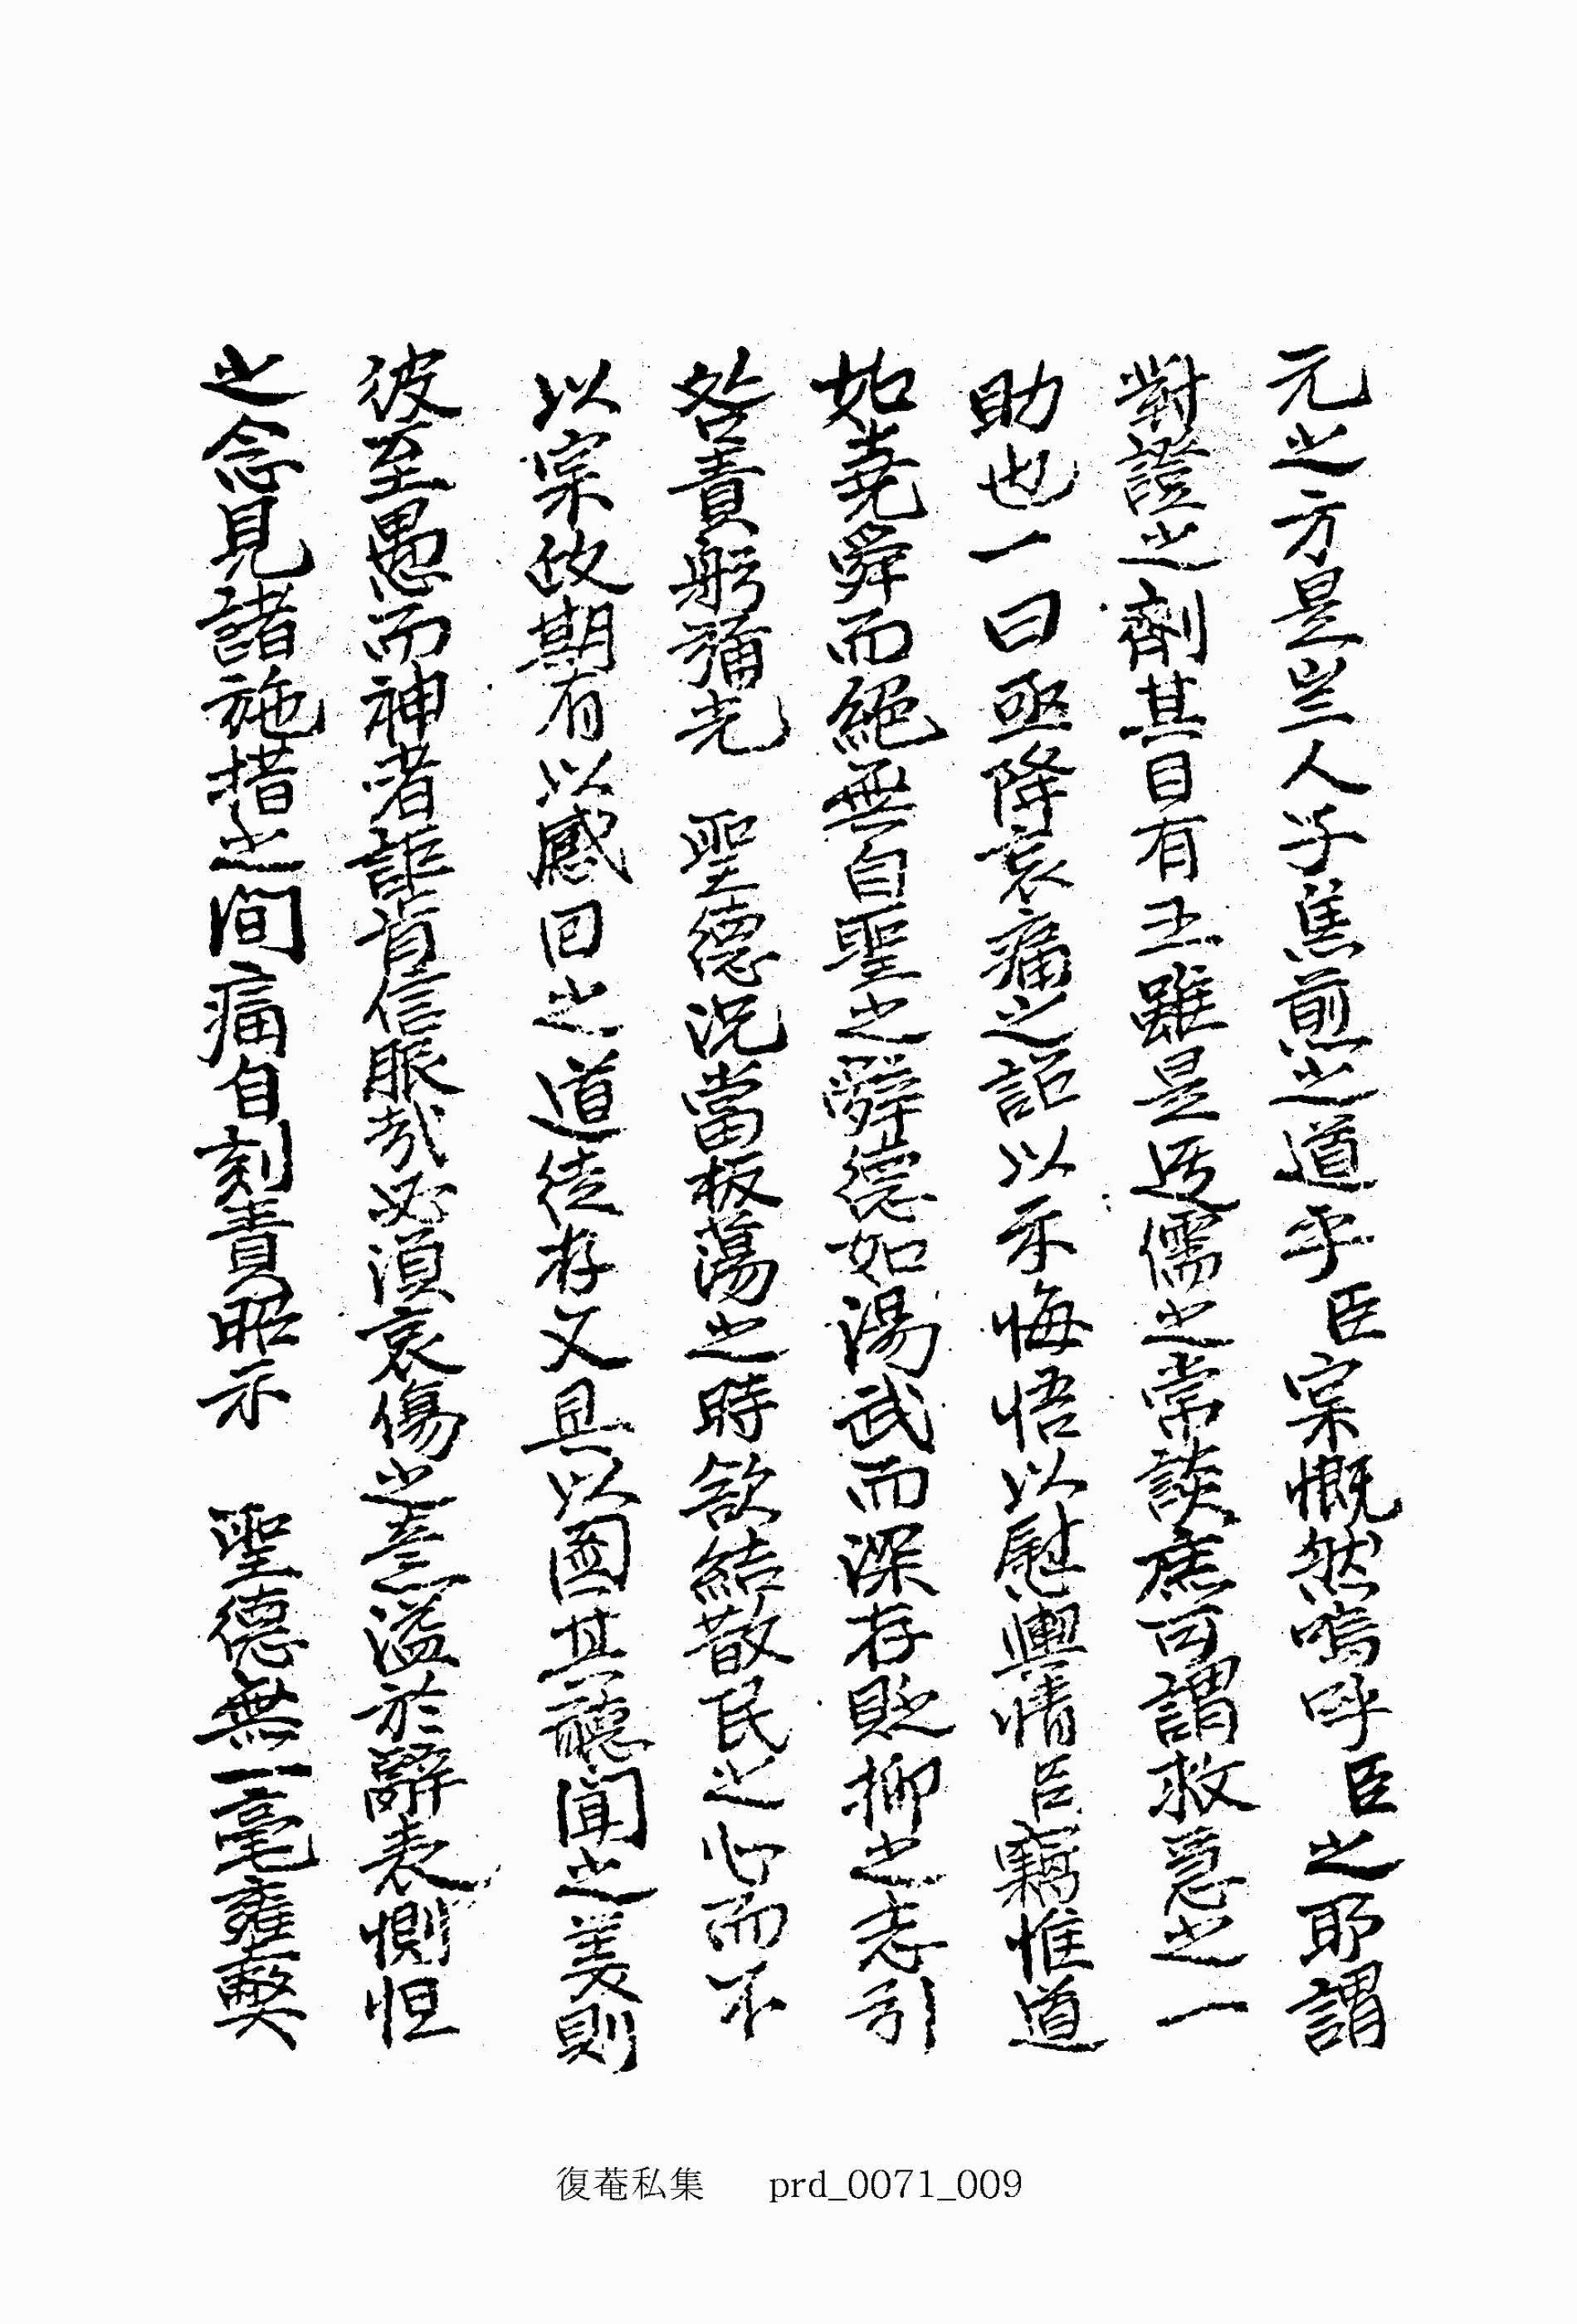 元之方是豈人子焦煎之道乎臣寀慨然嗚呼臣之耶謂
對證之劑其目有五雖是迂儒之常談庶可謂救急之一
助也一曰亟降哀痛之詔以示悔悟以慰輿情臣竊惟道
如堯舜而絕無自聖之辭德如湯武而深存貶抑之志引
咎責躬彌光 聖德況當板蕩之時欲結散民之心而不
以宗故期有以感回之道徒存文具以圖其聽聞之美則
彼至愚而神者詎肯信眼哉必須哀傷之意溢於辭表惻怛
之念見諸施措之間痛自刻責昭示 聖德無一毫雍獘
復菴私集 prd_0071_009